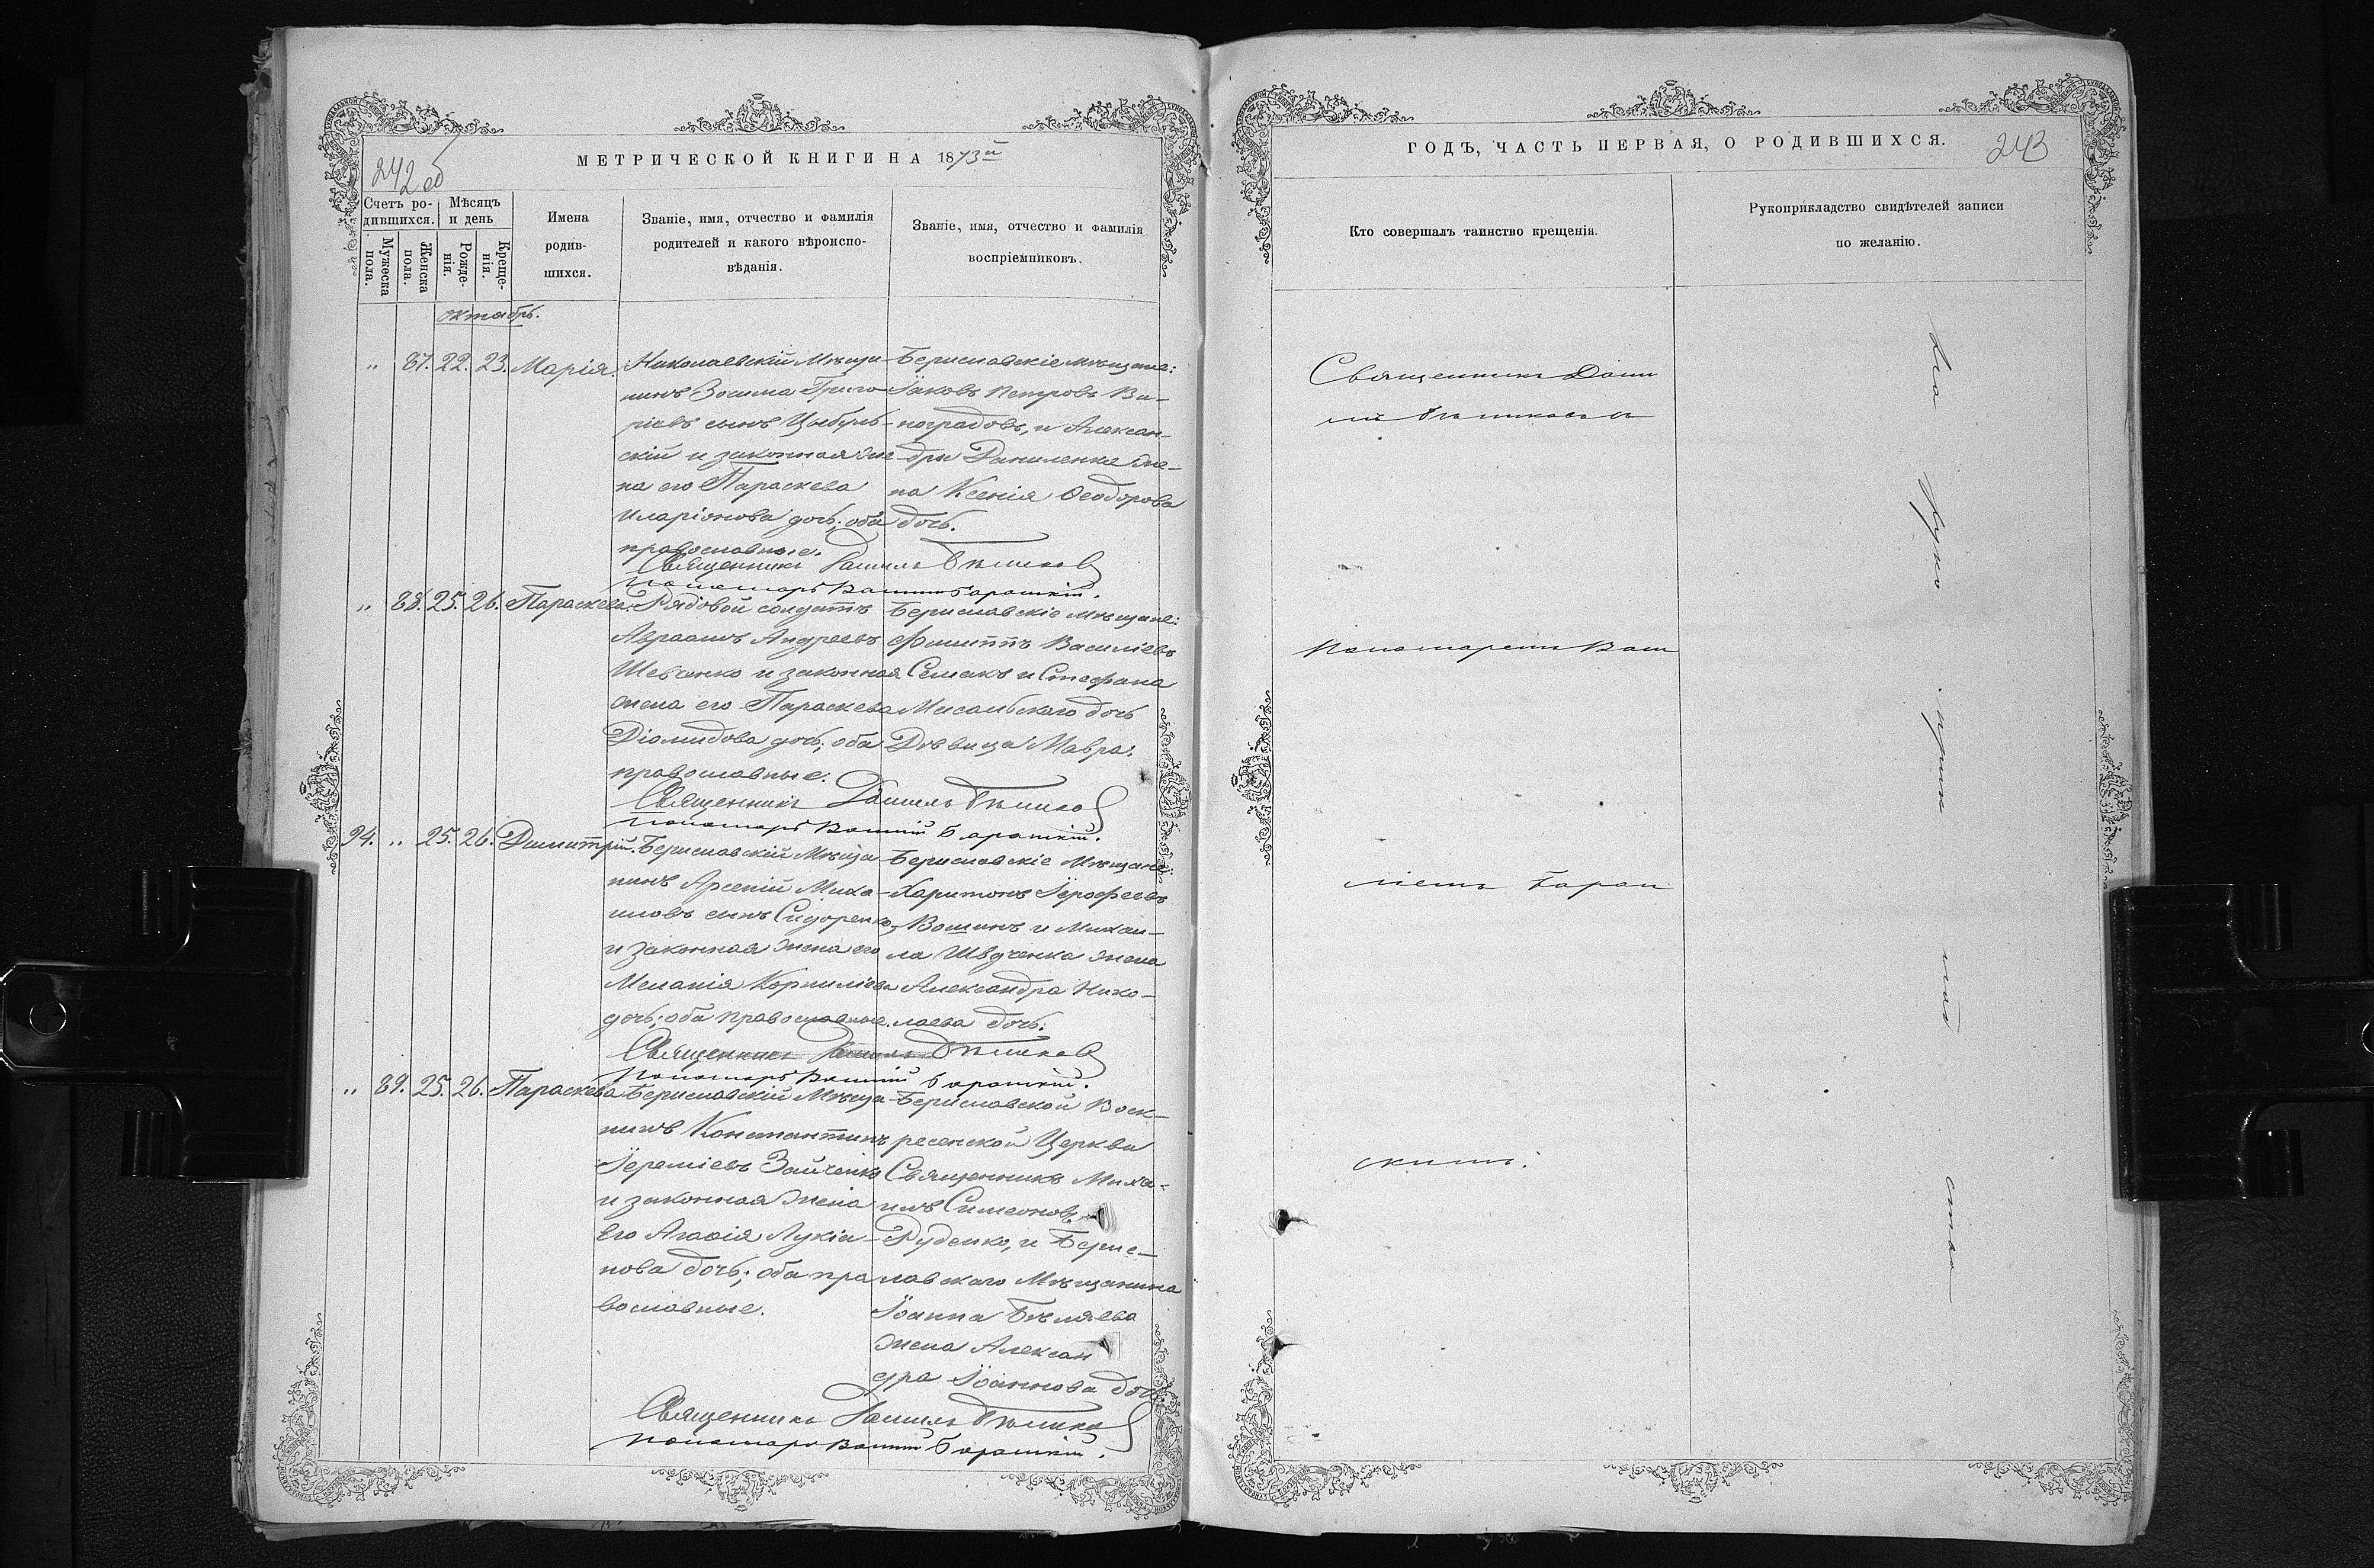 МЕТРИЧЕСКОЙ КНИГИ НА 1873й
242 об
Счетъ ро-
дившихся.
Мѣсяцъ
и день
Мужеска
пола.
Женска
пола.
Рожде-
нія.
Креще-
нія.
Имена
родив-
шихся.
Званіе, имя, отчество и фамилія
родителей и какого вѣроиспо-
вѣданія.
Званіе, имя, отчество и фамилія
воспріемниковъ.
Октябрь.
„ 87. 22. 23. Марія.
Николаевскій Мѣща-
нинъ Зосима Григо-
ріевъ сынъ Цыбуль-
скій и законная же-
на его Параскева
Иларіонова дочь; оба
православные.
Бериславскіе мѣщане:
Іаковъ Петровъ Ви-
ноградовъ, и Алексан-
дры Даниленка же-
на Ксенія Ѳеодорова
дочь.
Священникъ Даниилъ
Пономарь
„ 88. 25. 26. Параскева.
Рядовой солдатъ
Авраамъ Андреевъ
Шевченко и законная
жена его Параскева
Діомидова дочь; оба
православные.
Бериславскіе мѣщане:
Филиппъ Василіевъ
Семакъ и Стефана
дочь
Дѣвица Мавра.
Священникъ Даниилъ
Пономарь
94. „ 25. 26. Димитрій.
Бериславскій Мѣща-
нинъ Арсеній Миха-
иловъ сынъ Сидоренко,
и законная жена его
Меланія Корниліева
дочь; оба православные.
Бериславскіе Мѣщане:
Харитонъ Іерофеевъ
Вошинъ и Михаи-
ла Швдченка жена
Александра Нико-
лаева дочь.
Священникъ Даниилъ
Пономарь
„ 89. 25. 26. Параскева
Бериславскій Мѣща-
нинъ Константинъ
Іереміевъ Зайченко
и законная жена
его Агафія Лукіа-
нова дочь; оба пра
вославные.
Бериславской Воск-
ресенской Церкви
Священникъ Миха-
илъ Симеоновъ
Руденко, и Берис-
лавскаго Мѣщанина
Іоанна Бѣляева
жена Алексан
дра Іоаннова дочь
Священникъ Даниилъ
Пономарь
ГОДЪ, ЧАСТЬ ПЕРВАЯ, О РОДИВШИХСЯ.
243
Кто совершалъ таинство крещенія.
Рукоприкладство свидѣтелей записи
по желанію.
Священникъ Дани
илъ
Пономаремъ
скимъ.